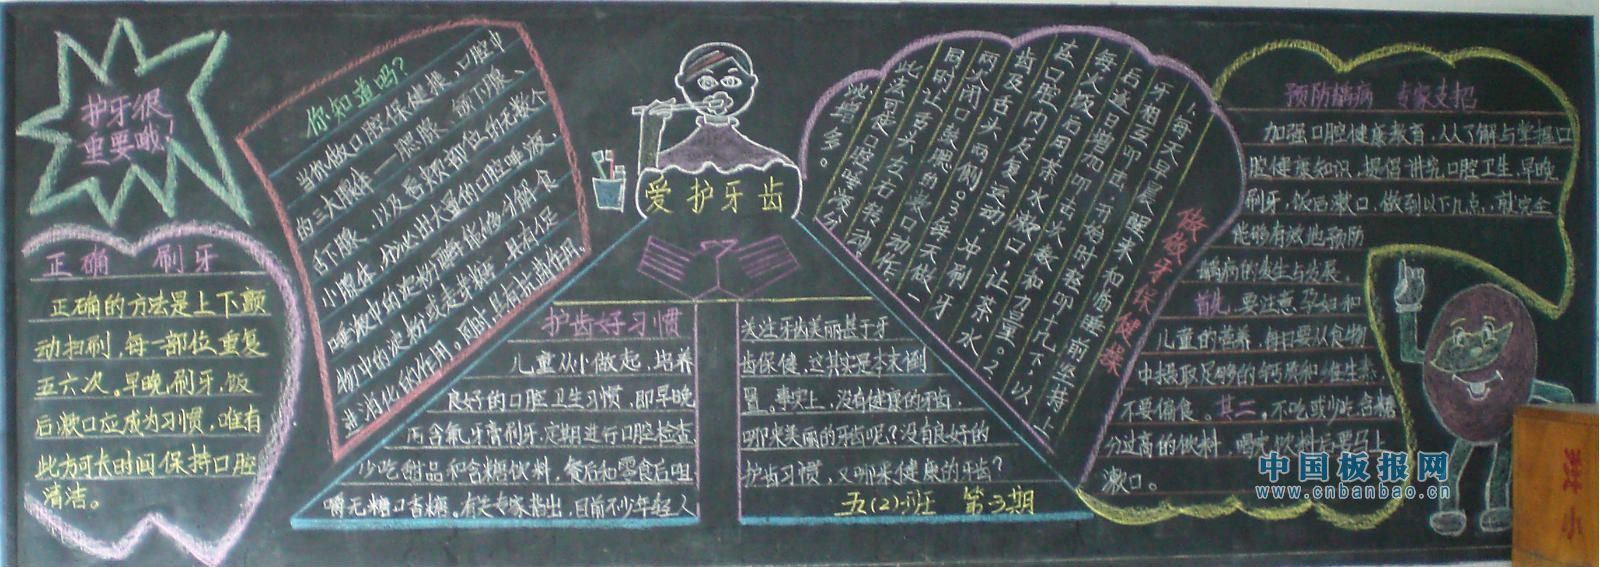 护牙很
重要哦！
正确 刷牙
正确的方法是上下颤
动扫刷，每一部位重复
五六次。早晚刷牙，饭
后漱口应成为习惯，唯有
此方可长时间保持口腔
清洁。
你知道吗？
当你做口腔保健操，口腔中
的三大腺体——腮腺、颌下腺、
舌下腺，以及唇颊部位的无数个
小腺体，分泌出大量的口腔唾液，
唾液中的淀粉酶能够分解食
物中的淀粉或麦芽糖，具有促
进消化的作用。同时具有抗菌作用。
爱护牙齿
护齿好习惯
儿童从小做起，培养
良好的口腔卫生习惯，即早晚
用含氟牙膏刷牙，定期进行口腔检查，
少吃甜品和含糖饮料，餐后和零食后咀
嚼无糖口香糖。有关专家指出，目前不少年轻人
关注牙齿美丽甚于牙
齿保健，这其实是本末倒
置。事实上，没有健康的牙齿，
哪来美丽的牙齿呢？没有良好的
护齿习惯，又哪来健康的牙齿？
五(2)班 第3期
做做牙保健操
1.每天早晨醒来和临睡前坚持上
牙相互叩击，开始时轻叩十几下，以
后逐日增加叩击次数和力量。2.
每次饭后用茶水漱口，让茶水
在口腔内反复运动，冲刷牙
齿及舌头两侧。3.每天做一
两次闭口鼓腮的漱口动作，
同时让舌头左右转动，
此法可使口腔唾液分
泌增多。
预防龋病 专家支招
加强口腔健康教育，人人了解与掌握口
腔健康知识，提倡讲究口腔卫生，早晚
刷牙，饭后漱口，做到以下几点，就完全
能够有效地预防
龋病的发生与发展。
首先，要注意孕妇和
儿童的营养，每日要从食物
中摄取足够的钙质和维生素，
不要偏食。其二，不吃或少吃含糖
分过高的饮料，喝完饮料后要马上
漱口。
中国板报网
www.cnbanbao.cn